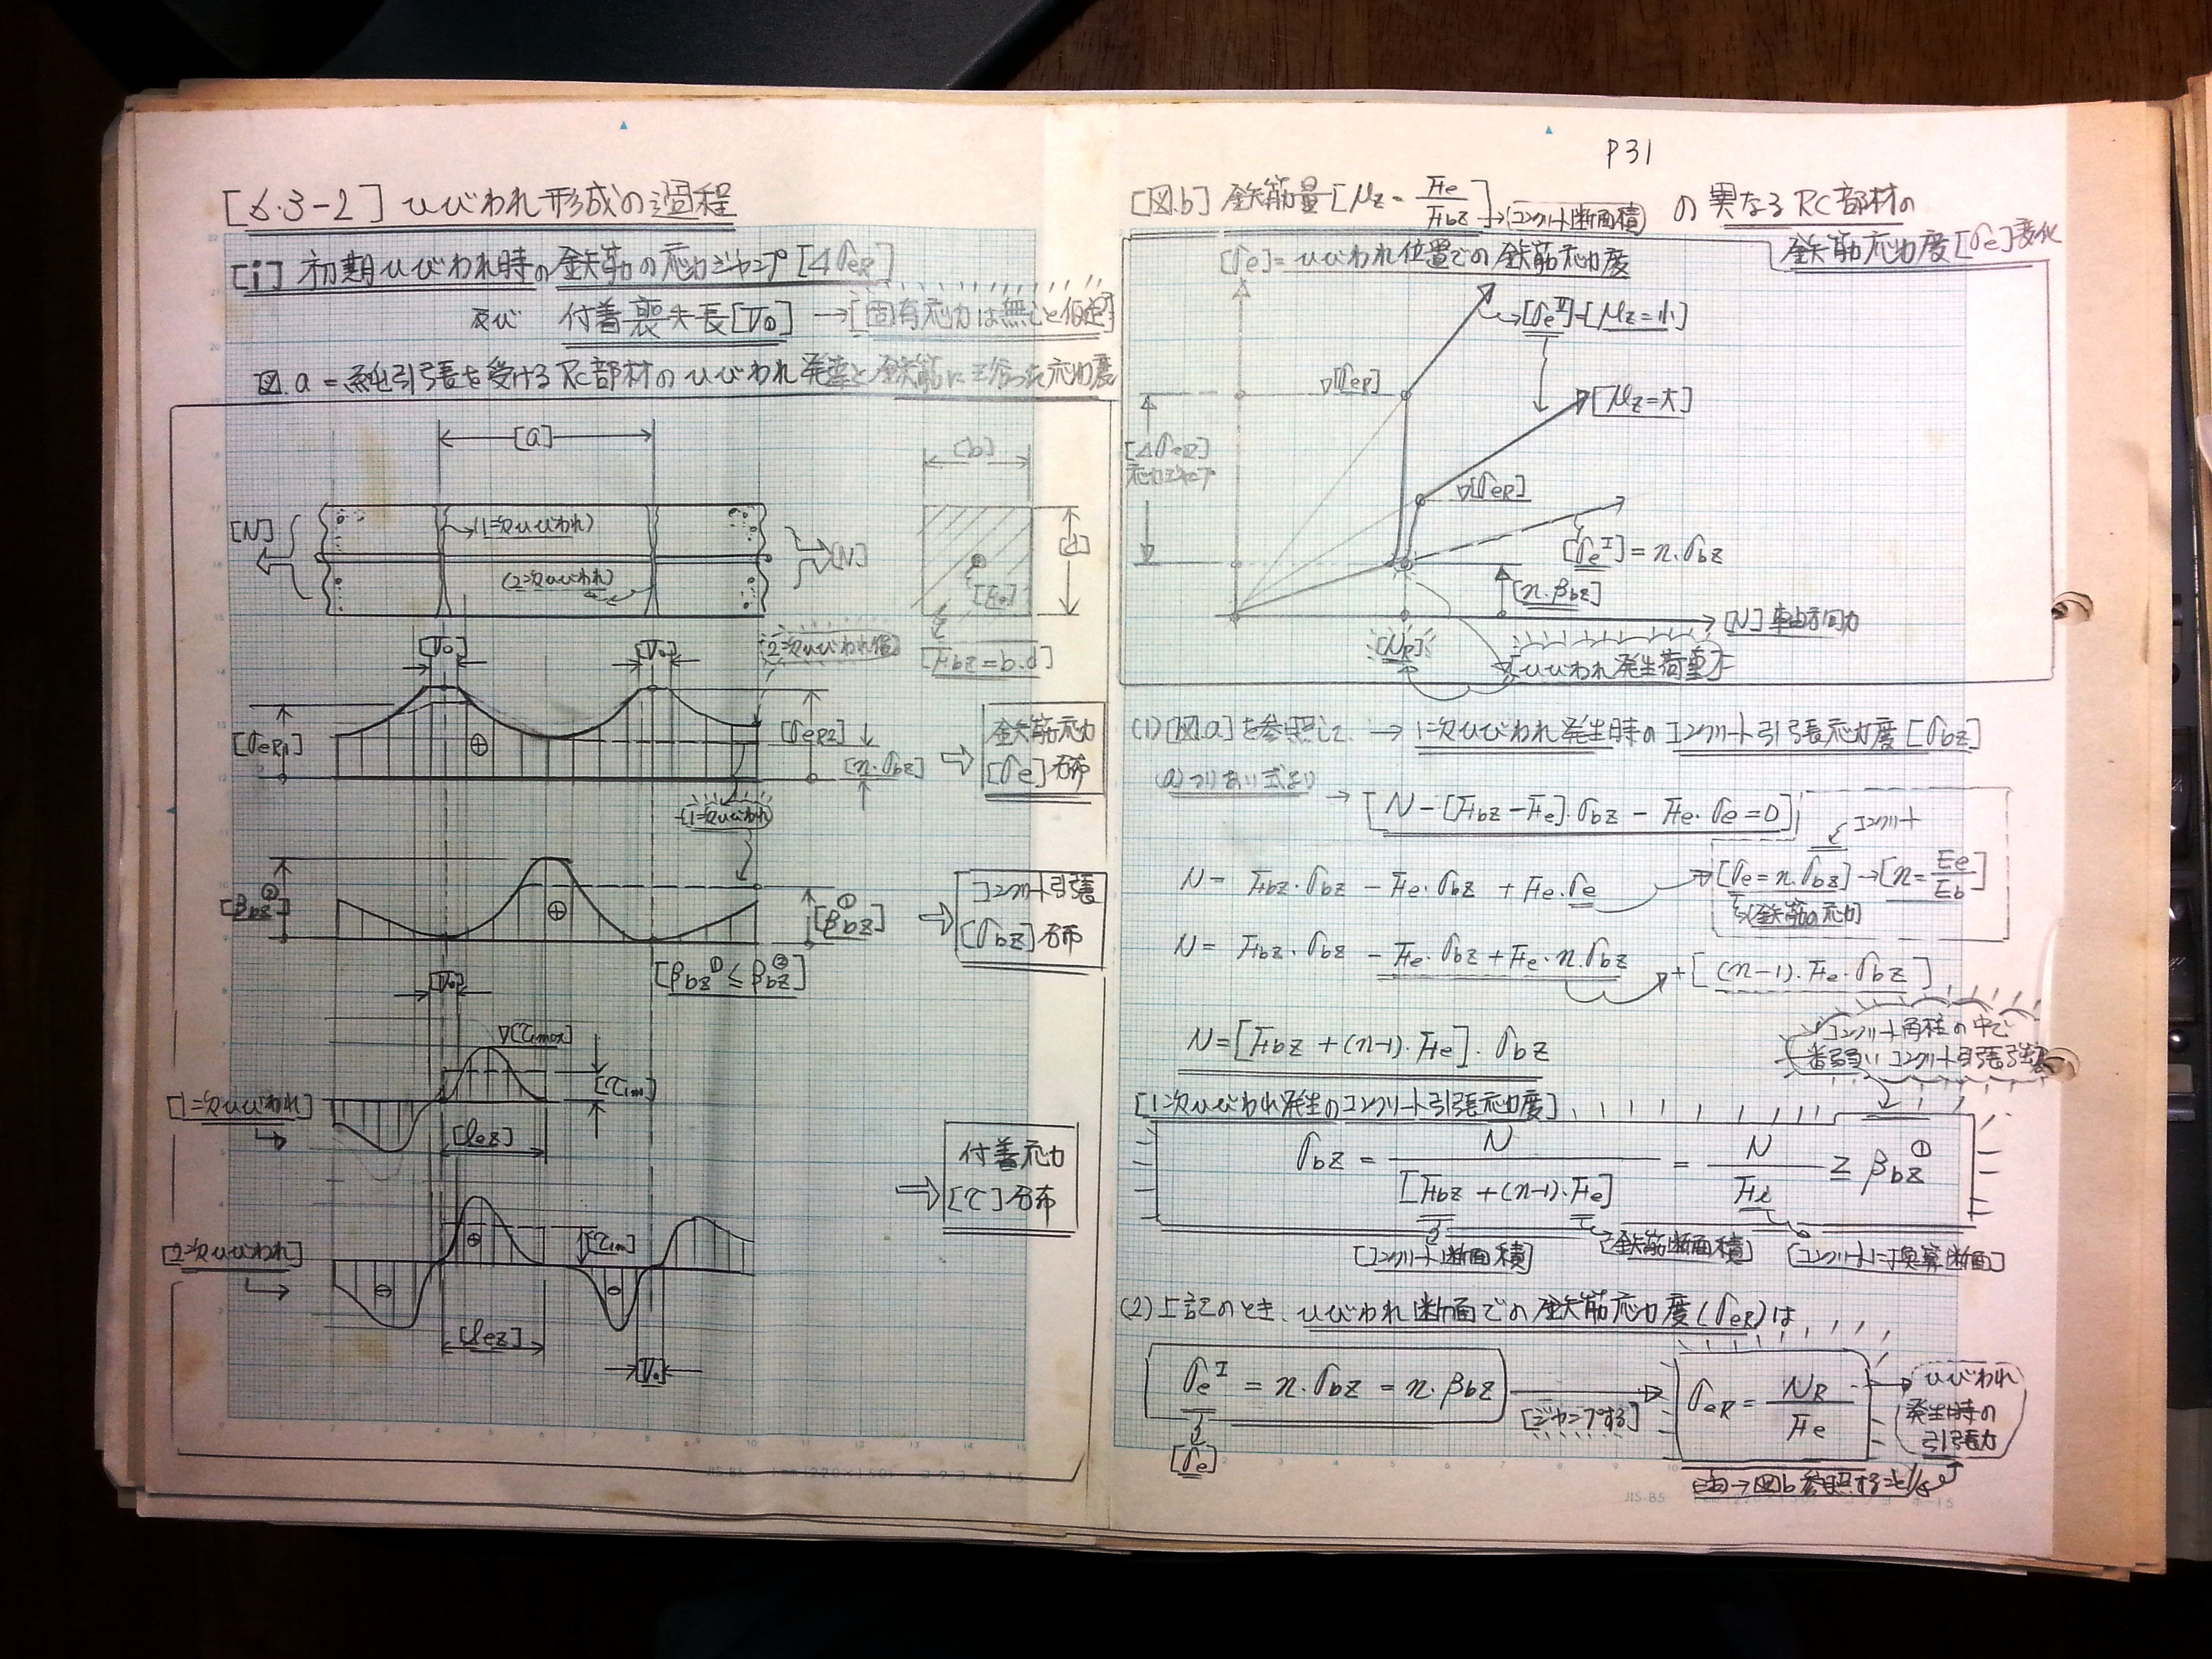 [6.3-2] ひびわれ形成の過程
[i] 初期ひびわれ時の鉄筋の応力ジャンプ[ΔσeR]
及び 付着喪失長[V0] →[固有応力は無しと仮定]
図.a = 純引張を受けるRC部材のひびわれ発達と鉄筋に沿った応力度
[a]
[b]
[N]
(1=次ひびわれ)
[N]
[d]
(2=次ひびわれ)
[Fbz=b.d]
[V0]
[V0]
[σeR1]
⊕
[σeR2]
[n.σbz]
鉄筋応力
[σe]分布
(1=次ひびわれ)
[βbz②]
⊕
[βbz①]
コンクリート引張
[σbz]分布
[βbz① ≦ βbz②]
[V0]
[τ1max]
[τ1m]
[1=次ひびわれ]
[lez]
付着応力
[τ]分布
[2=次ひびわれ]
⊖
⊕
[τ1m]
⊖
[lez]
[V0]
P31
[図.b] 鉄筋量[μz = Fe/Fbz]→(コンクリート断面積) の異なるRC部材の
鉄筋応力度[σe]変化
[σe]=ひびわれ位置での鉄筋応力度
[σeⅡ]-[μz=小]
[σeR]
[μz=大]
[ΔσeR]
応力ジャンプ
[σeR]
[σeⅠ]= n.σbz
[n.βbz]
[N]軸方向力
[NR]
[ひびわれ発生荷重]
(1)[図.a]を参照して → 1=次ひびわれ発生時のコンクリート引張応力度[σbz]
(a)つりあい式より
→ [N-[Fbz-Fe].σbz - Fe.σe=0]
コンクリート
N= Fbz.σbz - Fe.σbz + Fe.σe
[σe=n.σbz]→[n=Ee/Eb]
(鉄筋の応力)
N= Fbz.σbz - Fe.σbz + Fe.n.σbz
+[(n-1).Fe.σbz]
N=[Fbz +(n-1).Fe].σbz
コンクリート角柱の中で
一番弱いコンクリート引張強度
[1=次ひびわれ発生のコンクリート引張応力度]
σbz = N/[Fbz +(n-1).Fe] = N/Fi ≧ βbz①
[コンクリート断面積]
[鉄筋断面積]
[コンクリートに換算断面]
(2)上記のとき、ひびわれ断面での鉄筋応力度(σeR)は
σeⅠ = n.σbz = n.βbz
[ジャンプする]
σeR = NR/Fe
ひびわれ
発生時の
引張力
[σe]
図b参照すること
JIS-B5